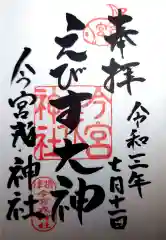 奉拝
令和二年
七月十一日
えびす大神
今宮戎神社
今宮
神社